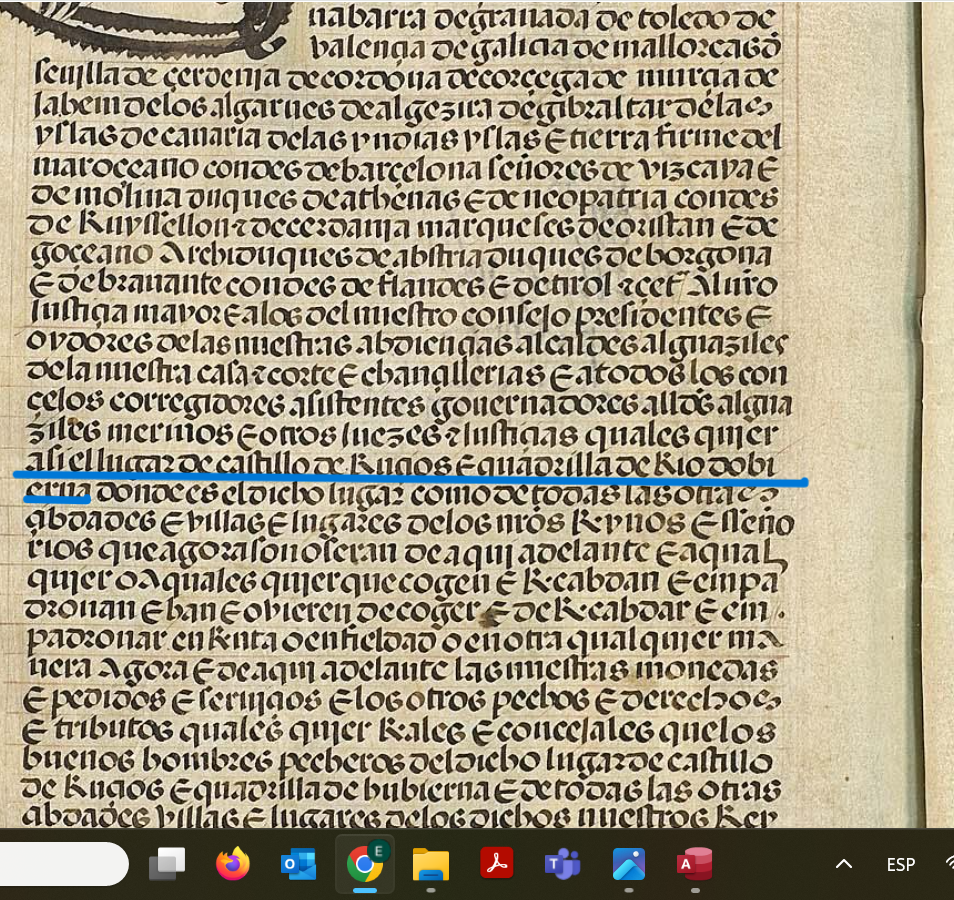 nabarra degranada de toledo de
valençia de galiçia de mallorcas d
seuilla de çerdenna de cordoua decorçega de murçia de
Jahem delos algarues de algezira de gibraltar delas
yslas de canaria delas yndias yslas E tierra firme del
mar oceano condes debarçelona señores de vizcaya E
de molina duques de athenas E de neopatria condes
de Ruysellon z decerdania marqueses deoristan E de
goçeano Archiduques de abstria duques de borgona
E de brauante condes de flandes E de tirol z çet Aluro
Justiçia mayor E alos del nuestro consejo presidentes E
oydores delas nuestras abdiençias alcaldes alguaziles
dela nuestra casa z corte E chançillerias E a todos los con
çejos corregidores asistentes gouernadores alldes algua
ziles merinos E otros Juezes z Justiçias quales quier
asi el lugar de castillo de Ruçios E quadrilla de Rio dobi
erna donde es el dicho lugar como de todas las otras
çibdades E villas E lugares delos nros Rynos E seño
rios que agora son o seran de aqui adelante E a qual
quier o A quales quier que cogen E Recabdan E enpa
dronan E han E ovieren de coger E de Recabdar E em
padronar en Renta o en fieldad o en otra qual quier ma
nera Agora E de aqui adelante las nuestras monedas
E pedidos E seruiçios E los otros pechos E derechos
E tributos quales quier Reales E conçejales que los
buenos hombres pecheros del dicho lugar de castillo
de Ruçios E quadrilla de hubierna E de todas las otras
çibdades Villas E lugares delos dichos nuestros Rey
E
ESP